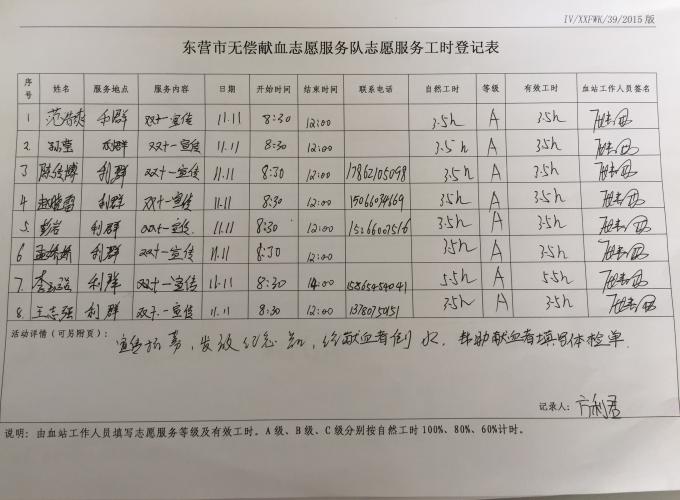 IV/XXFWK/39/2015 版
东营市无偿献血志愿服务队志愿服务工时登记表
序号 姓名 服务地点 服务内容 日期 开始时间 结束时间 联系电话 自然工时 等级 有效工时 血站工作人员签名
1 利群 双十一宣传 11.11 8:30 12:00 3.5h A 3.5h
2. 利群 双十一宣传 11.11 8:30 12:00 3.5h A 3.5h
3 陈俊博 利群 双十一宣传 11.11 8:30 12:00 17862105098 3.5h A 3.5h
4 利群 双十一宣传 11.11 8:30 12:00 15066034169 3.5h A 3.5h
5. 彭岩 利群 双十一宣传 11.11 8:30 12:00 3.5h A 3.5h
6 孟娇娇 利群 双十一宣传 11.11 8:30 12:00 3.5h A 3.5h
7. 利群 双十一宣传 11.11 8:30 14:00 5.5h A 5.5h
8. 王志强 利群 双十一宣传 11.11 8:30 12:00 3.5h A 3.5h
活动详情（可另附页）： 宣传招募，发放纪念品，给献血者倒水，帮助献血者填写体检单.
记录人： 方利君
说明：由血站工作人员填写志愿服务等级及有效工时。A 级、B 级、C 级分别按自然工时 100%、80%、60%计时。